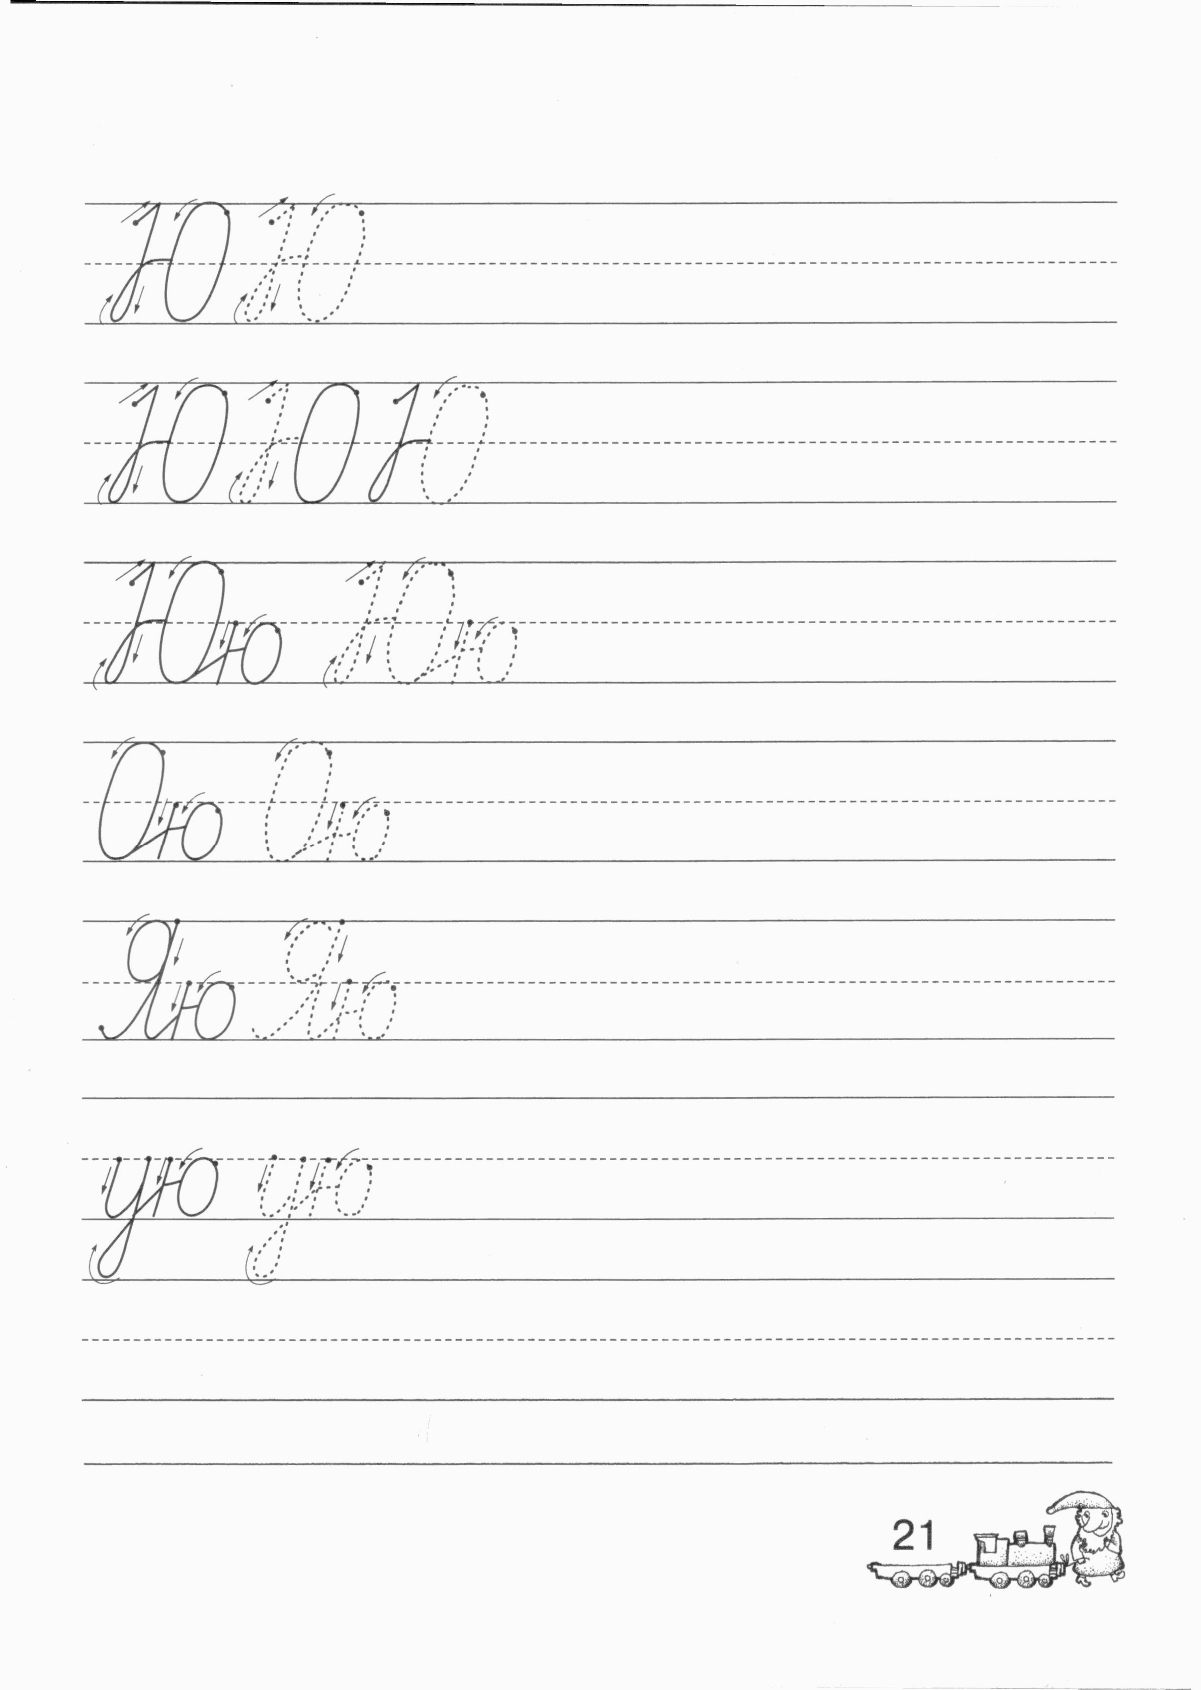 Ю Ю
Ю Ю Ю
Юю Юю
Ою Ою
Яю Яю
ую ую
21